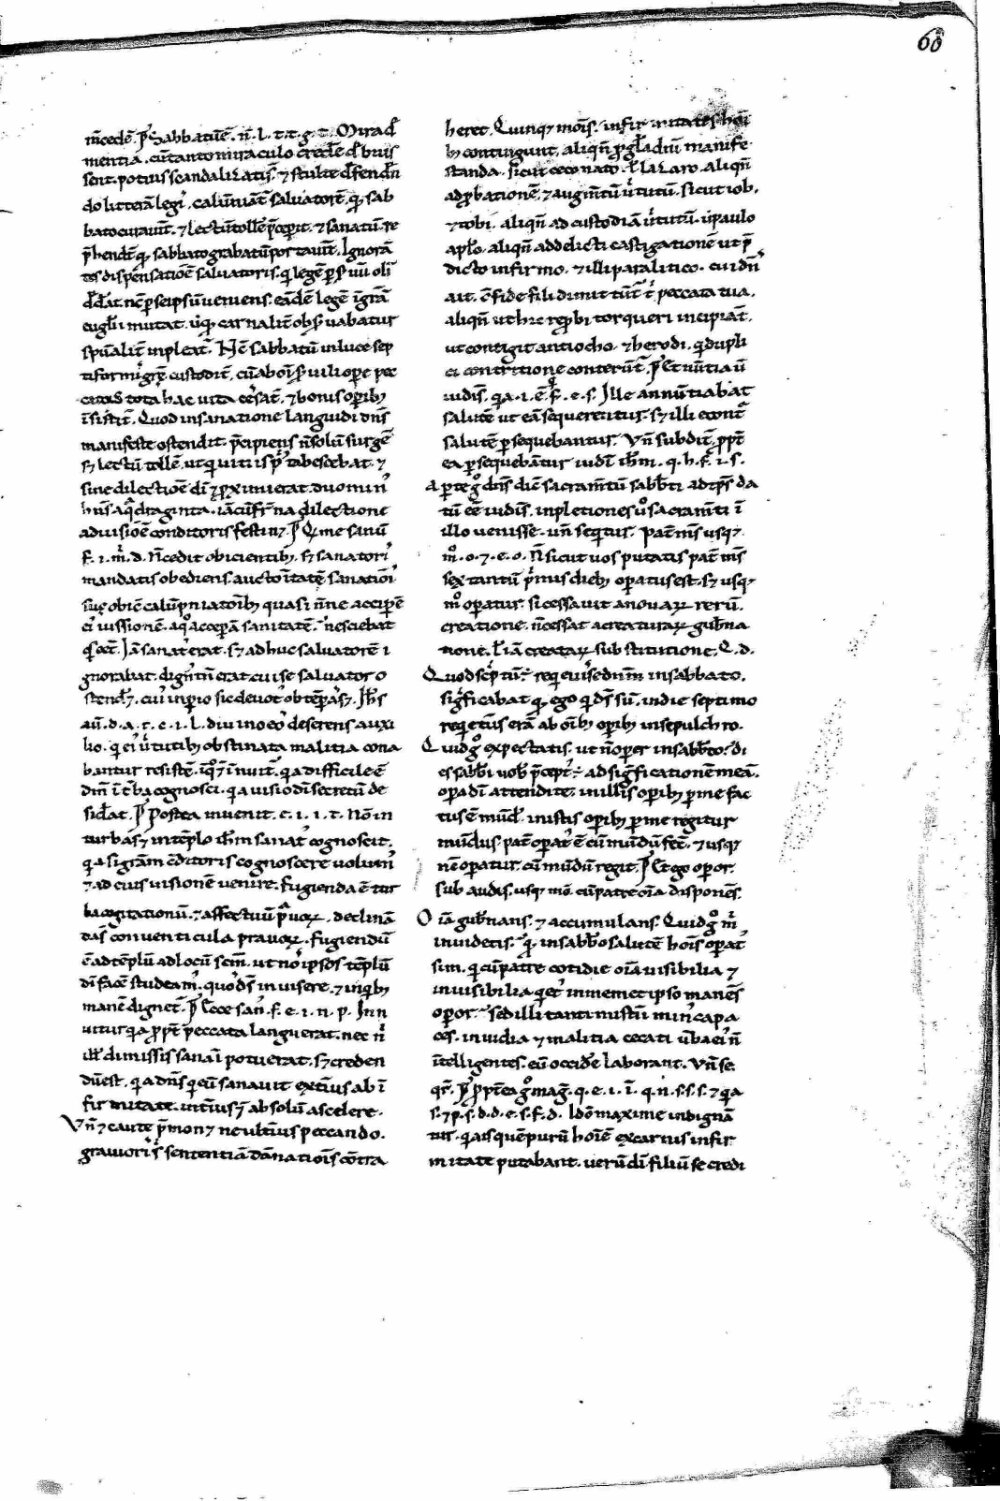 60
m̄cedē. p̄ Sabbatūē. n̄. l. t. t. g. t. Mira d̄
mentia. cū tanto miraculo credē d̄buis
sent. potius scandalizatis. ⁊ stulte d̄fendn̄
do litterā legi. calūnīat̄ salvatorē. q̄ sab
bato curauit. ⁊ lectū tollē p̄cepit. ⁊ sanatū re
p̄hendt̄ q̄ sabbato grabatū portauit̄. Ignorā
tes dispēnsationē saluatoris. q̄ legē
dd̄at nc̄ p seipsū ueniens. eādē legē ī grā
euglii mutat. carnalit̄ obs̄uabatur
spūalit̄ inpleat̄. Hc̄ sabbatū in luce sep
tiformi grē custodit̄. cū ab oī s̄uili ope pec
cati tota hac uita cēsat̄. ⁊ bonis opib;
īsistit̄. Quod in sanatione languidi dn̄s
manifeste ostendit. p̄cipiens n̄ solū surgē
s; lectū tollē. ut qui uitiis p̄ tabescebat ⁊
sine dilectiōe dī ⁊ pximi erat. duo min'
hn̄s a q̄draginta. iā cū frīna dilectione
ad uisiōē conditoris festin&. p̄ Q̄ me sanū
f. i. m̄. d. n̄ cedit obicientib;. s; sanatori
mandatis obediens. auctoītatē sanatiōī
sue obicē calūpniatoīb; quasi n̄ne accipē
ei' iussionē. a q̄ accepā sanitatē. nesciebat
q̄s cēt̄. Iā sanat' erat. s; adhuc saluatorē i
gnorabat. dign'tn̄ erat cui se saluator o
stend&. cui' inpio sic deuot' obtēpas&. Ih̄s
aū. d. a. t. c. i. l. diuino eos deserens auxi
lio. q̄ ei' ūtutib; obstinata malitia cona
bantur resistē. īq̄ ⁊ īnuit̄. q̄a difficile ē
dm̄ ī tba cognosci. q̄a uisio dī secretū de
sid̄at. p̄ Postea inuenit. c. i. i. t. Nō in
turba s; in tēplo ih̄m sanat' cognoscit.
q̄a si grām cōditoris cognoscere uolum'
⁊ ad eius uisionē uenire. fugienda ē tur
ba cogitationū. ⁊ affectuū p̄uoꝝ. declinā
da s̄ conuenticula prauoꝝ. fugiendū
ē ad tēplū ad locū scm̄. ut nos ipsos tēplū
dī facē studeam'. quos d̄s inuisere. ⁊ inq̄b;
manē dignet̄. p̄ Ecce san'. f. e. i. n. p. Inn
uitur q̄a p̄pt̄ peccata languerat. nec n̄
ill' dimissis sanari potuerat. s; creden
dū est. q̄a dn̄s q̄ eū sanauit ext̄ius ab ī
firmitate. int̄ius ⁊ absolū a scelere.
Vn̄ ⁊ caute p̄mon& ne ult̄ius peccando.
grauiori s̄ sententiā dānatiōis cōtra
heret. Quinq; mōis. infirmitates hoī
b; contingunt. aliqn̄ p gl̄a dm̄ manife
standa. sicut ceco nato. ł lazaro. aliqn̄
ad pbationē ⁊ augm̄tū ūtutū. sicut iob.
⁊ tobi. aliqn̄ ad custodiā ūtutū. ū paulo
aplo. aliqn̄ ad delicti castigationē ut p̄
dicto infirmo. ⁊ illi paralitico. cui dn̄
ait. cfide fili dimittūt̄ t' peccata tua.
aliqn̄ ut hic repbi torqueri incipiāt̄.
ut contigit antiocho. ⁊ herodi. q̄ dupli
ci contritione conterūt̄. p̄ Et nūtia ū
iudis̄. q̄a. i. ē. f̄. e. s. Ille annūtiabat
salutē ut eā sequerentur. s; illi econt̄
salutē psequebantur. Vn̄ subdit̄. ppt̄
ea psequebāntur iudī ih̄m. q. h. f̄. i. s.
Aperte g̊ dn̄s diē sacram̄tū sabb̄ti ad tps̄ da
tū cē iudis̄. inpletiones ū sacram̄ti ī
illo uenisse. un̄ seq̄tus. Pat̄ m̄s usq;
m̊. o. ⁊. e. o. N̄ sicut uos putatis pat̄ m̄s
sex tantū p̄mus dieb; opatus est. s; usq;
m̊ opatus. si cessauit a nouaꝝ rerū.
creatione. n̄ cessat a creaturaꝝ gubna
tione. ł iā creataꝝ substitutione. Q. d.
Quod scptū. requieuise dm̄ in sabbato.
sigficabat q̄ ego q̄ d̄s sū. in die septimo
req̄eturus erā ab oīb; opib; in sepulchro.
Quid g̊ expectatis. ut n̄ oper in sabb̄to. di
es sabb̄i uob' p̄cept' ÷ ad sigficationē meā.
opa dī attendite. in illis opib; p me fac
tus ē mūd'. in istis opib; p me regitur
mūdus. pat̄ opat' ē cū mūdū fec̄. ⁊ usq;
nc̄ opatur. cū mūdū regit. p̄ Et ego opor.
sub audis. usq; m̊. cū patre oīa disponēs.
Oīa gubnans. ⁊ accumulans. Quid g̊ m̄
inuidetis. q̄ in sabb̄o salutē hoīs opat'
sim. q̄ cū patre cotidie oīa uisibilia ⁊
inuisibilia q̄et' in memet ipso manēs
opor. Sed illi tanti mist̄ii min' capa
ces. inuidia ⁊ malitia cecati ūba ei' n̄
ītelligentes. eū occidē laborant. Vn̄ se
qr̄. p̄ ppt̄ea g̊ mag̊. q. e. i. ī. q. n. s. s. s. ⁊ q̄a
s. ⁊ p. s. d. d. e. s. f. d. Idc̄ maxime indignā
tur. q̄a is quē purū hoīē ex carnis infir
mitate putabant. uerū dī filiū se credi